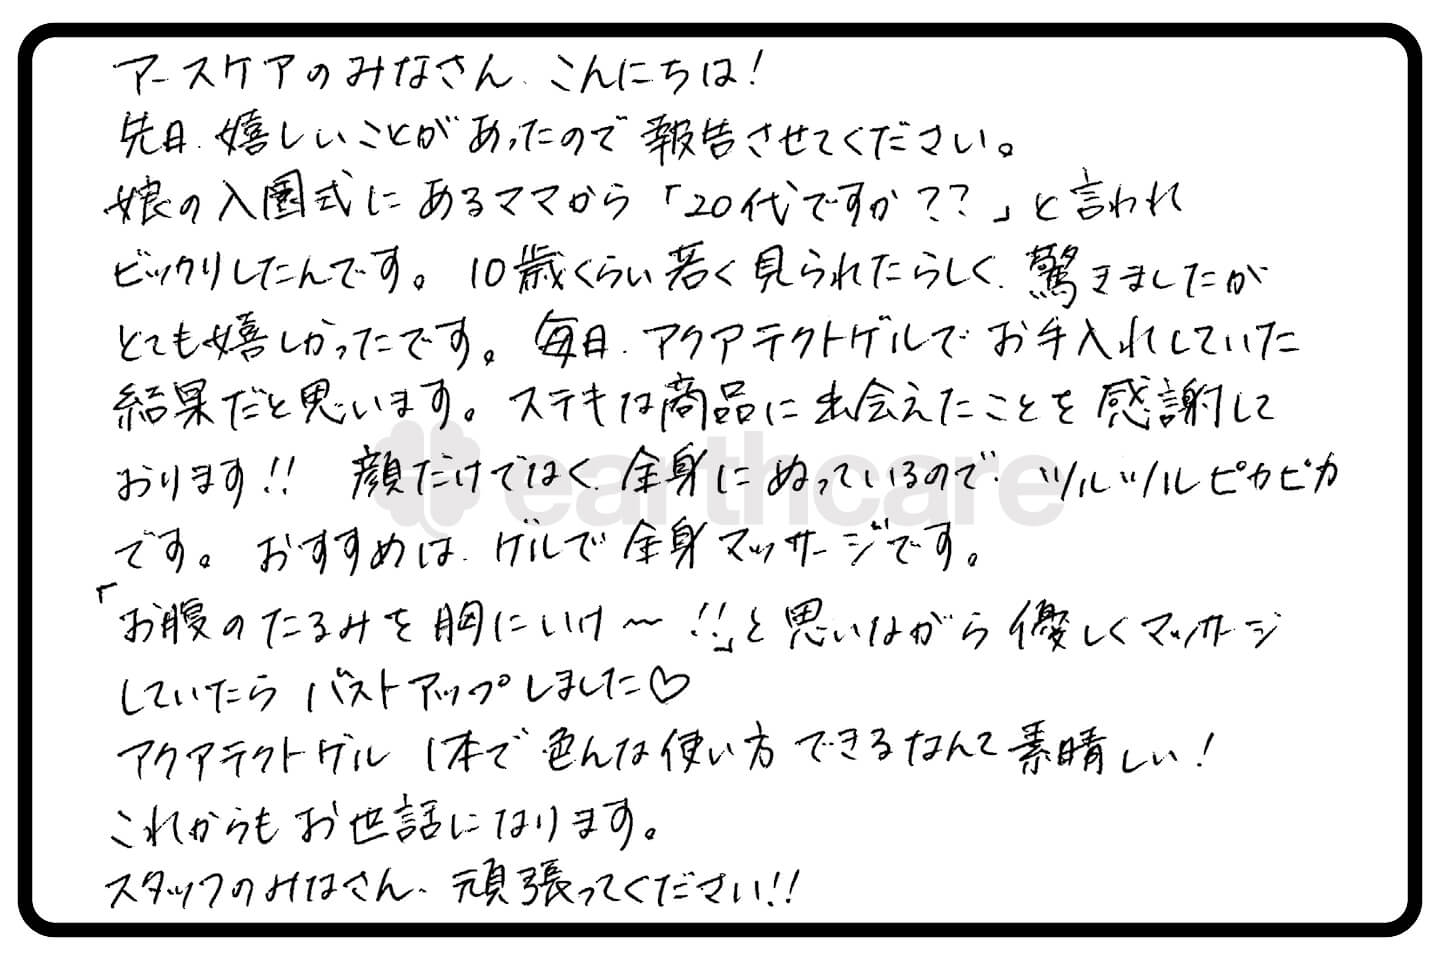 アースケアのみなさん、こんにちは！
先日、嬉しいことがあったので報告させてください。
娘の入園式にあるママから「20代ですか？？」と言われ
ビックリしたんです。10歳くらい若く見られたらしく、驚きましたが
とても嬉しかったです。毎日、アクアテクトゲルでお手入れしていた
結果だと思います。ステキな商品に出会えたことを感謝して
おります！！ 顔だけではなく、全身にぬっているので、ツルツルピカピカ
です。おすすめは、ゲルで全身マッサージです。
「お腹のたるみを胸にいけ〜！！」と思いながら優しくマッサージ
していたらバストアップしました♡
アクアテクトゲル1本で色んな使い方できるなんて素晴しい！
これからもお世話になります。
スタッフのみなさん、頑張ってください！！
earthcare